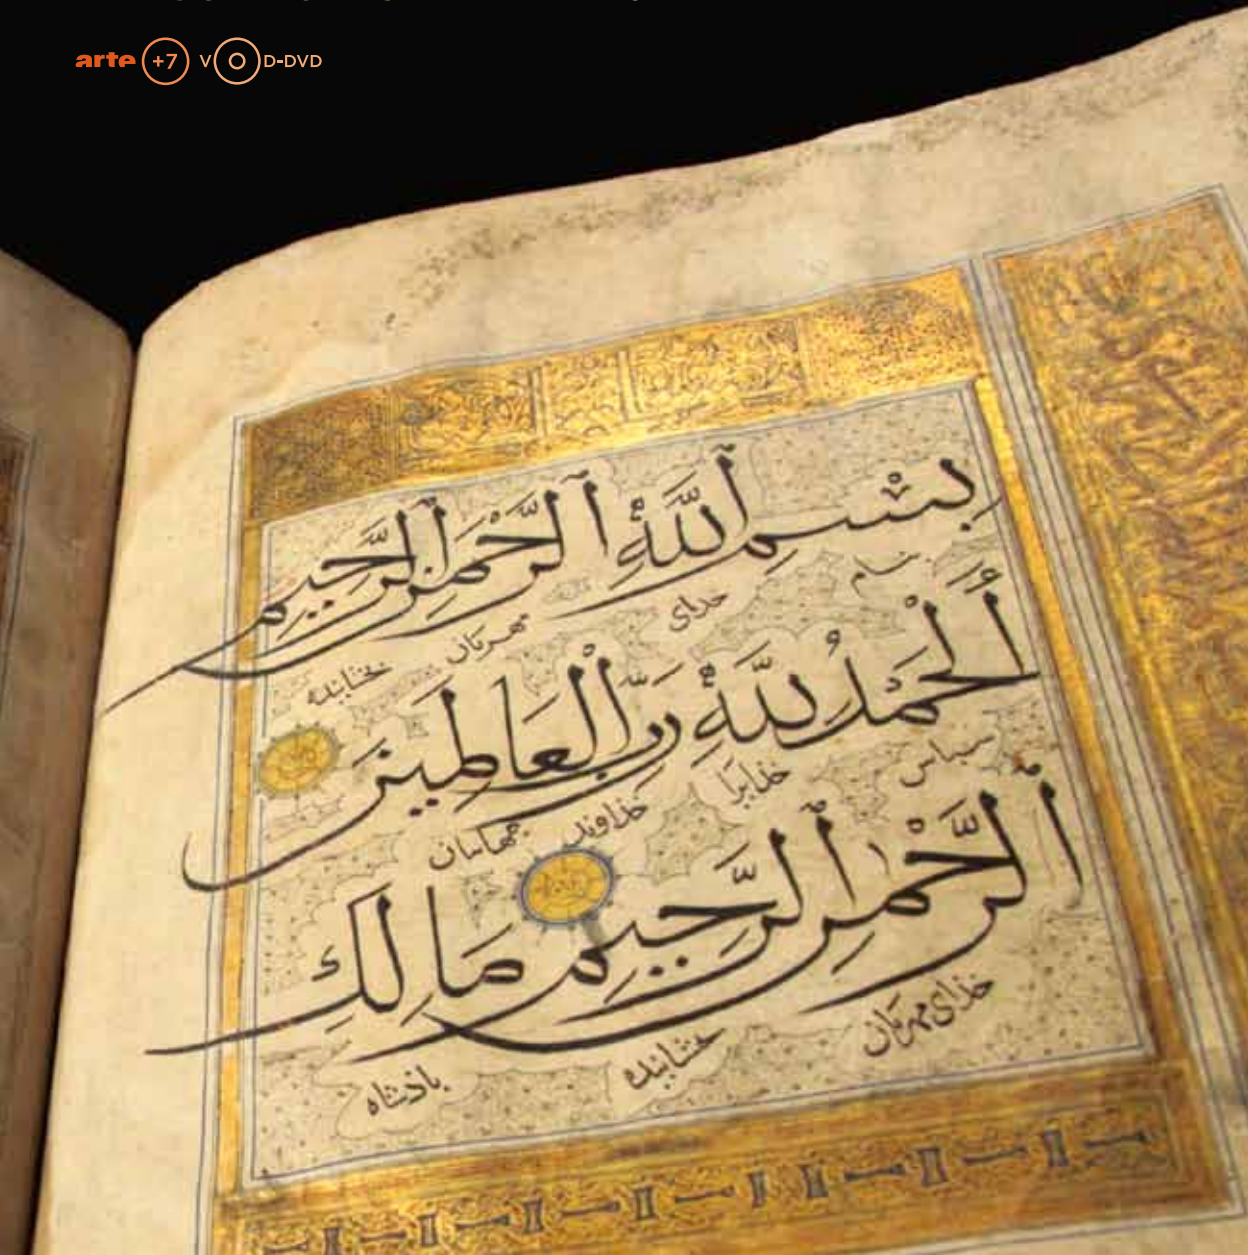 arte +7 VOD-DVD
بِسْمِ ٱللَّهِ ٱلرَّحْمَٰنِ ٱلرَّحِيمِ
بنام خدای مهربان بخشاینده
أَلْحَمْدُ لِلَّهِ رَبِّ ٱلْعَالَمِينَ
سپاس خدایرا خذاوند جهانیان
ٱلرَّحْمَٰنِ ٱلرَّحِيمِ مَالِكِ
خذای مهربان بخشاینده باذشاه